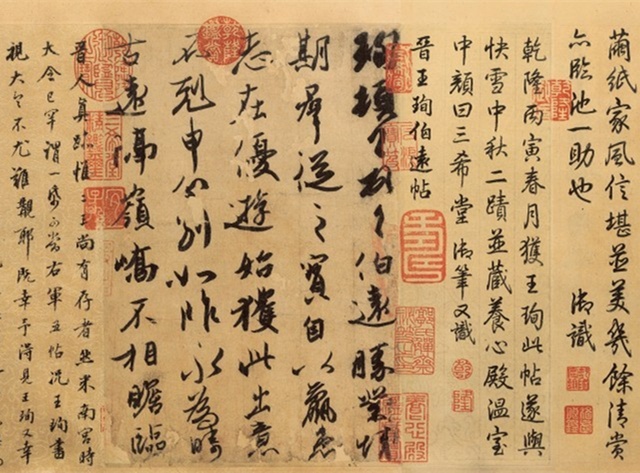 繭紙家風信堪並美幾餘清賞
亦臨池一助也 御識
乾隆丙寅春月獲王珣此帖遂與
快雪中秋二蹟並藏養心殿溫室
中顏曰三希堂御筆又識
乾隆
晉王珣伯遠帖
珣頓首頓首伯遠勝業情
期群從之寶自以羸患
志在優遊始獲此出意
不剋申分別如昨永為疇
古遠隔嶺嶠不相瞻臨
晉人真跡惟二王尚有存者然米南宮時
大令已罕謂一紙可當右軍五帖況王珣書
視大令不尤難覯耶既幸予得見王珣又幸